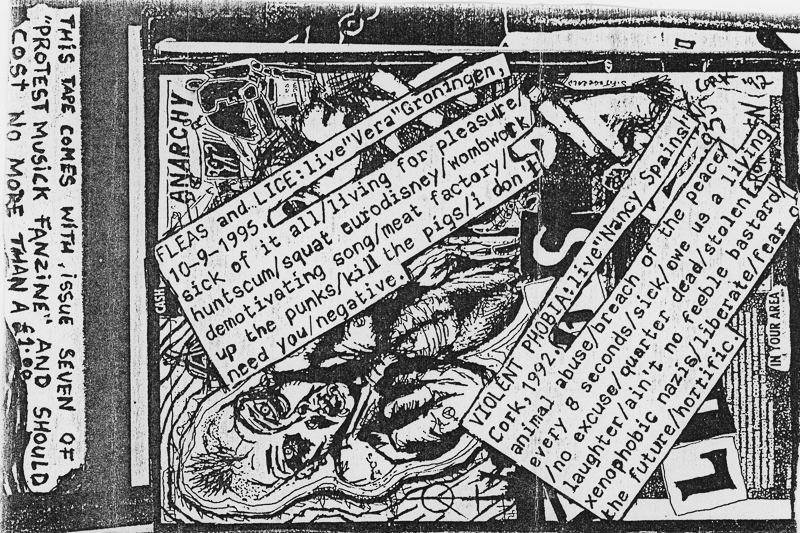 THIS TAPE COMES WITH, ISSUE SEVEN OF
"PROTEST MUSICK FANZINE" AND SHOULD
COST NO MORE THAN A £1.00
ANARCHY
FLEAS and LICE:live"Vera"Groningen,
10-9-1995.
sick of it all/living for pleasure/
huntscum/squat eurodisney/wombwork
demotivating song/meat factory/
up the punks/kill the pigs/i don't
need you/negative.
VIOLENT PHOBIA:live"Nancy Spainsh
Cork, 1992.
animal abuse/breach of the peace/
every 8 seconds/sick/owe us a living
/no excuse/quarter dead/stolen
laughter/ain't no feeble bastard/
xenophobic nazis/liberate/fear o
the future/horrific.
IN YOUR AREA
L